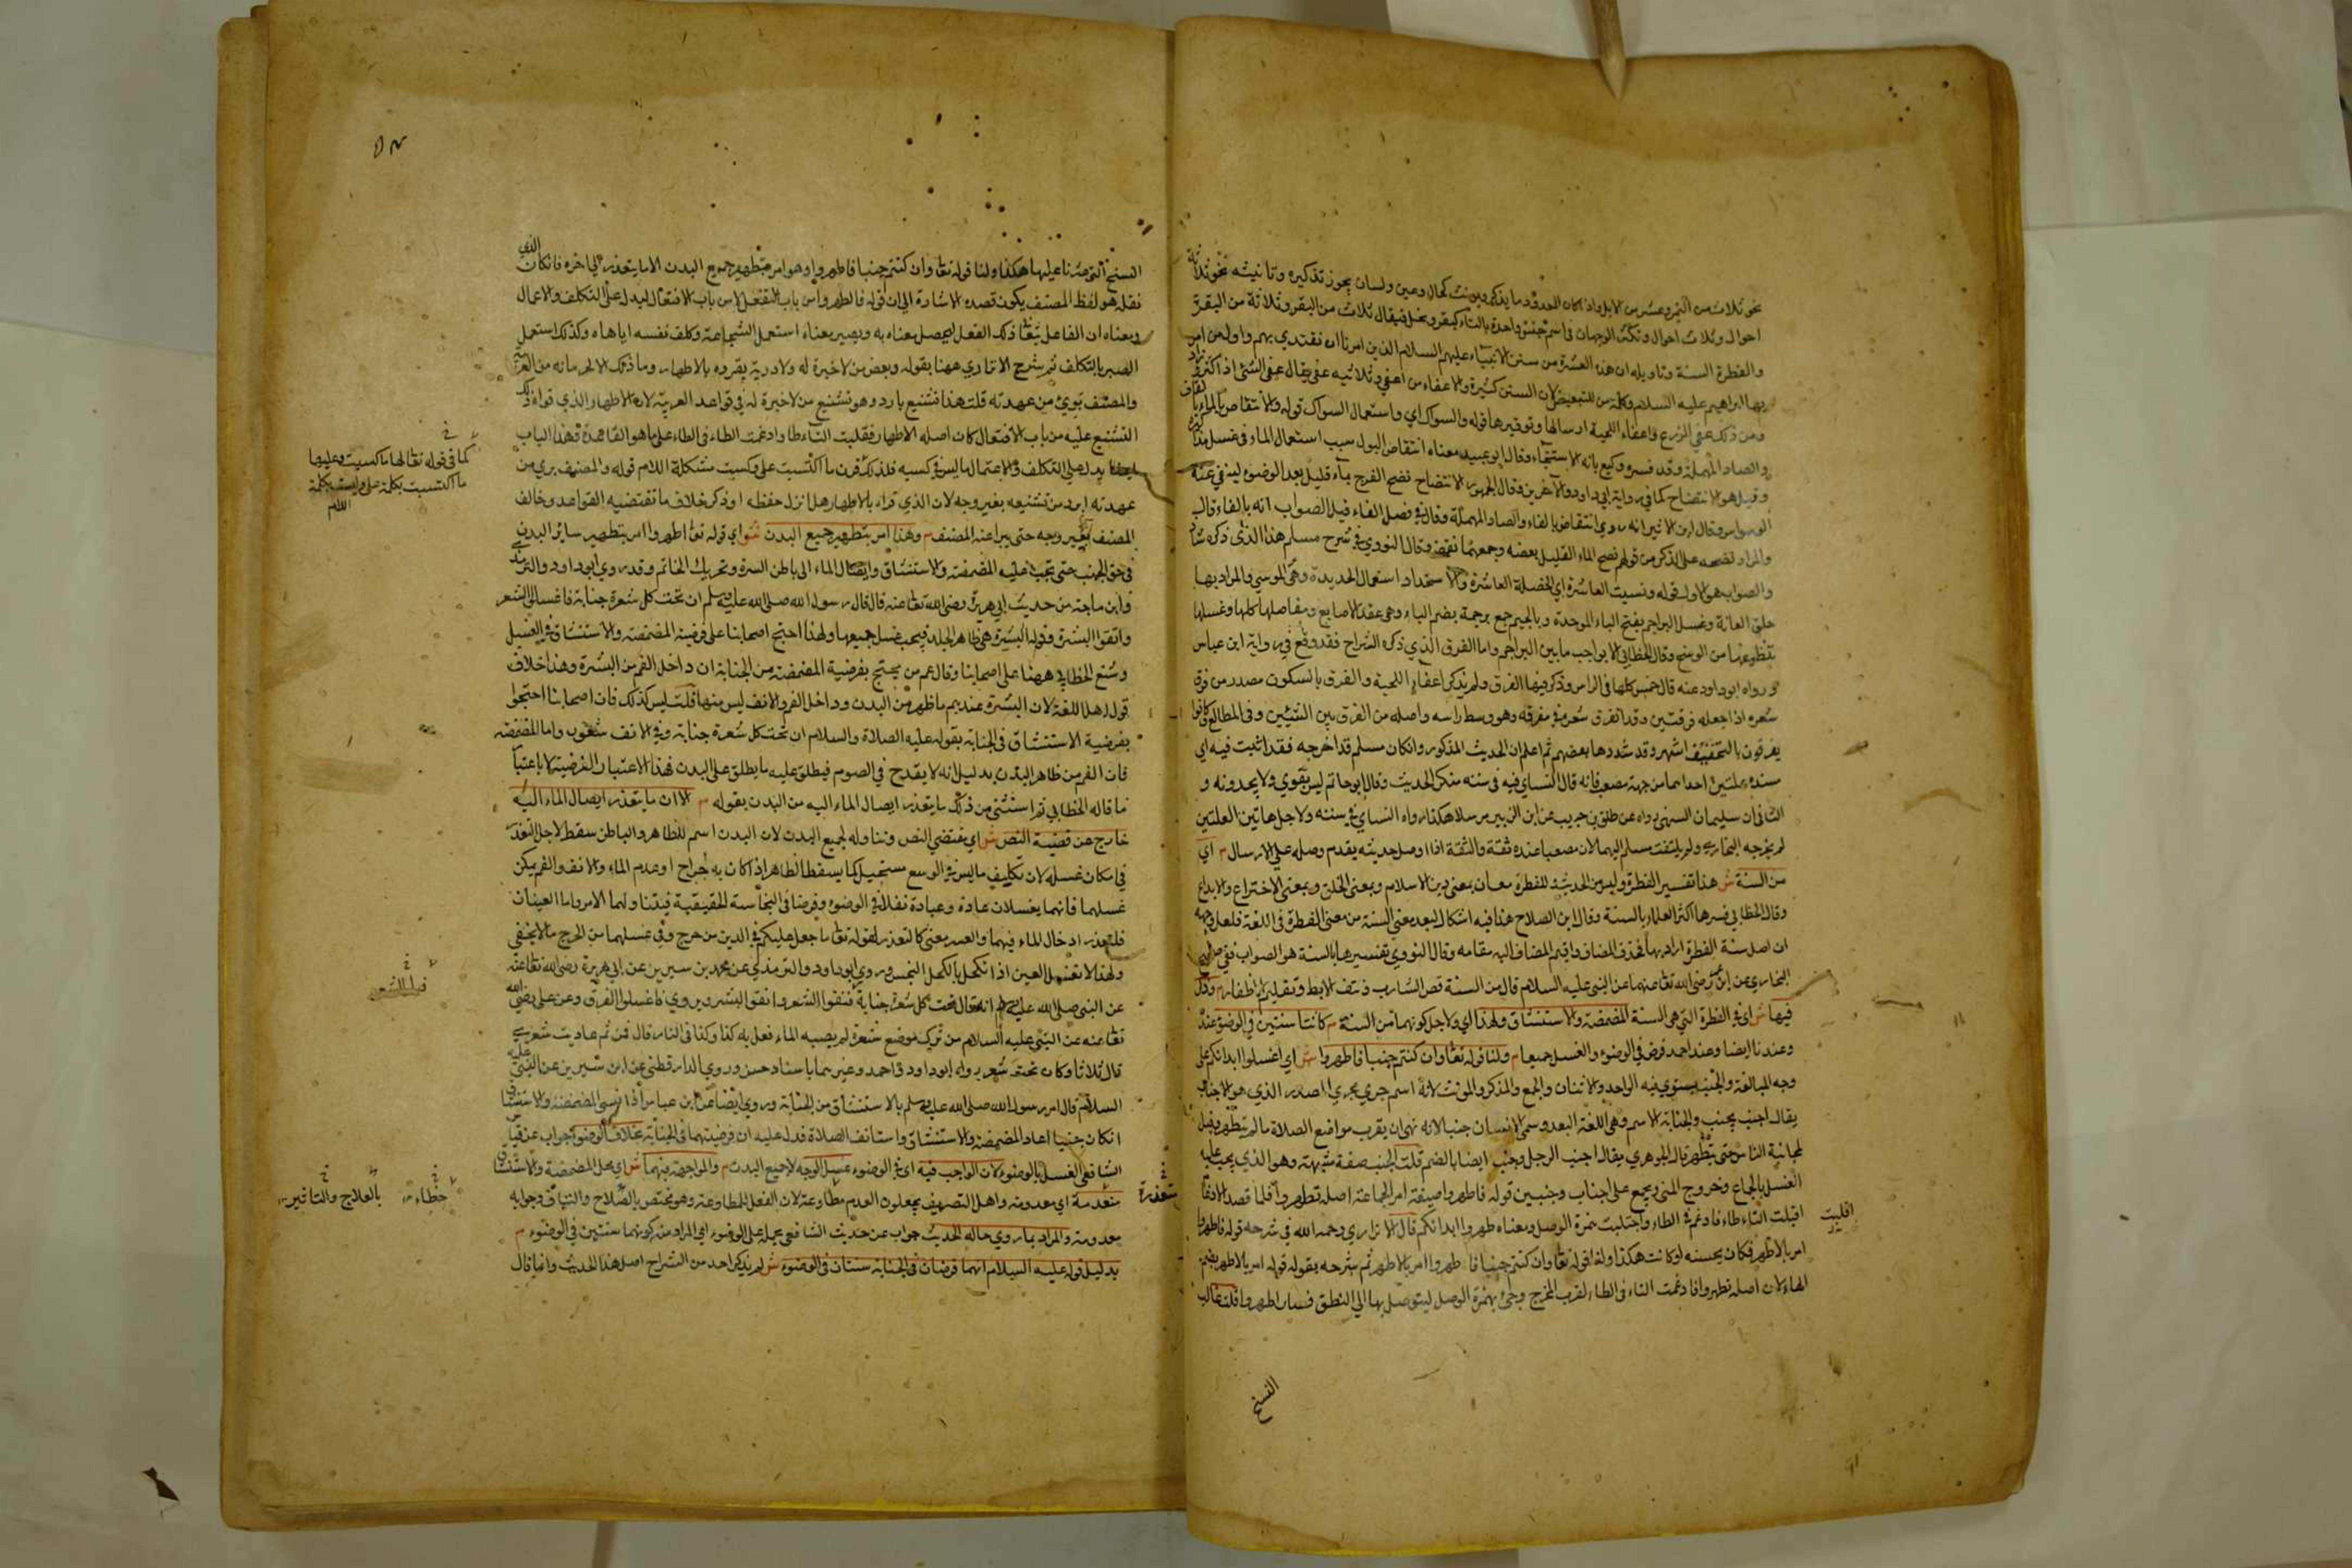 نحو ثلاث من التمر وعشر من الابل واذا كان المعدود مما يذكر ويونث كحال وعين ولسان يجوز تذكيره وتانيثه نحو ثلاثة
احوال وثلاث احوال وتكثر الوجهان في اسم جنس واحدة بالتاء كبقر ونخل فيقال ثلاث من البقر وثلاثة من البقر
والفطرة السنة وتاويله ان هذه العشرة من سنن الانبياء عليهم السلام الذين امرنا ان نقتدي بهم واول من امر
بها ابراهيم عليه السلام وكلمة من للتبعيض لان السنن كثيرة والاعفاء من اعفى وثلاثيه عفى يقال عفى الشئ اذا كثر وزاد
ومن ذلك عفى الزرع واعفاء اللحية ارسالها وتوفيرها قوله والسواك اي واستعمال السواك قوله والانتقاص بالماء بالقاف
والصاد المهملة وقد فسره وكيع بانه الاستنجاء وقال ابو عبيد معناه انتقاص البول بسبب استعمال الماء في غسل مذاكيره
وقيل هو الانتضاح كما في رواية ابي داود والآخرين وقال الجمهور الانتضاح نضح الفرج بماء قليل بعد الوضوء لينفي عنه
الوسواس وقال ابن الاثير انه روي انتفاص بالفاء والصاد المهملة وقال في فصل الفاء قيل الصواب انه بالفاء قال
والمراد نضحه على الذكر من قولهم نضح الماء القليل بعضه وجمعها نفص وقال النووي في شرح مسلم هذا الذي ذكره شاذ
والصواب هو الاول قوله ونسيت العاشرة اي الخصلة العاشرة والاستحداد استعمال الحديدة وهي الموسى والمراد بها
حلق العانة وغسل البراجم بفتح الباء الموحدة وبالجيم جمع برجمة بضم الباء وهي عقد الاصابع ومفاصلها كلها وغسلها
تنظيفها من الوسخ وقال الخطابي الرواجب ما بين البراجم واما الفرق الذي ذكره الشراح فقد وقع في رواية ابن عباس
ورواه ابو داود عنه قال خمس كلها في الراس وذكر فيها الفرق ولم يذكر اعفاء اللحية والفرق بالسكون مصدر من فرق
شعره اذا جعله فرقتين وقد انفرق شعره في مفرقه وهو وسط راسه واصله من الفرق بين الشيئين وفي المطالع كانوا
يفرقون بالتخفيف اشهر وقد شددها بعضهم ثم اعلم ان الحديث المذكور وان كان مسلم قد اخرجه فقد اثبت فيه اي
سنده علتين احداهما من جهة مصعب فانه قال النسائي فيه في سننه منكر الحديث وقال ابو حاتم ليس بقوي ولا يحمدونه و
الثانى ان سليمان التيمي رواه عن طلق بن حبيب عن ابن الزبير مرسلا هكذا رواه النسائي في سننه ولاجل هاتين العلتين
لم يخرجه البخاري ولم يلتفت مسلم اليهما لان مصعبا عنده ثقة والثقة اذا اوصل حديثه يقدم وصله على الارسال م اي
من السنة ش هذا تفسير الفطرة وليس من الحديث وللفطرة معان بمعنى دين الاسلام وبمعنى الخلق وبمعنى الاختراع والابداع
وقال الخطابي فسرها اكثر العلماء بالسنة وقال ابن الصلاح هذا فيه اشكال لبعد معنى السنة من معنى الفطرة في اللغة فلعل وجهه
ان اصل سنة الفطرة اراد بها فحذف المضاف واقيم المضاف اليه مقامه وقال النووي تفسيرها بالسنة هو الصواب ففي صحيح
البخاري عن ابن عمر رضي الله تعالى عنهما عن النبي عليه السلام قال من السنة قص الشارب ونتف الابط وتقليم الاظفار م وذكر
فيها ش اي في الفطرة التي هي السنة المضمضة والاستنشاق ولهذا اي ولاجل كونهما من السنة م كانتا سنتين في الوضوء عندنا
وعندنا ايضا وعند احمد فرض في الوضوء والغسل جميعا م ولنا قوله تعالى وان كنتم جنبا فاطهروا ش اي اغسلوا ابدانكم على
وجه المبالغة والجنب يستوي فيه الواحد والاثنان والجمع والمذكر والمونث لانه اسم جري مجري المصدر الذي هو الاجناب
يقال اجنب يجنب والجنابة الاسم وهي في اللغة البعد وسمي الانسان جنبا لانه نهي ان يقرب مواضع الصلاة ما لم يتطهر وقيل
لمجانبة الناس حتى يتطهر قال الجوهري يقال اجنب الرجل وجنب ايضا بالضم قلت الجنب صفة مشبهة وهو الذي يجب عليه
الغسل بالجماع وخروج المني ويجمع على اجناب وجنبين قوله فاطهروا صيغة امر الجماعة اصله تطهروا فلما قصد الادغام
اقبلت التاء طاء فادغم في الطاء واجتلبت همزة الوصل ومعناه طهروا ابدانكم قال الاتراري رحمه الله في شرحه قوله فاطهروا
امر بالاطهر فكان يحسنه لو كانت هكذا ولنا قوله تعالى وان كنتم جنبا فاطهروا امر بالاطهر ثم شرحه بقوله قوله امر بالاطهر بضم
الهاء لان اصله تطهروا فادغمت التاء في الطاء لقرب المخرج وجئ بهمزة الوصل ليتوصل بها الي النطق فصار اطهروا قلت غالب
اقلبت
النسخ
النسخ التي عثرنا عليها هكذا ولنا قوله تعالى وان كنتم جنبا فاطهروا وهو امر بتطهير جميع البدن الا ما يتعذر الى اخره فان كان الذي
نقله هو لفظ المصنف يكون قصده الاشارة الي ان قوله فاطهروا من باب التفعل لا من باب الافتعال ليدل على التكلف والاعمال
ومعناه ان الفاعل يتعانى ذلك الفعل ليحصل بمعناه به ويصير بمعناه استعمل الشجاعة وكلف نفسه اياها وكذلك استعمل
الصبر بالتكلف ثم شرح الاتراري ههنا بقوله وبعض من لا خبرة له ولا درية يقروه بالاطهار وما ذلك الا لحرمانه من العربية
والمصنف بريء من عهدته قلت هذا تشنيع بارد وهو تشنيع من لا خبرة له في قواعد العربية لان الاطهار الذي قراه ذلك
التشنيع عليه من باب الافتعال كان اصله الاطتهار فقلبت التاء طا وادغمت الطاء في الطاء على ما هو القاعدة وهذا الباب
ايضا يدل على التكلف والاعتمال ما ليس في كسبه فلذلك قرن ما اكتسبت على وكسبت متكلة اللام قوله والمصنف بري من
عهدته ابرد من تشنيعه بغير وجه لان الذي قراه بالاطهار هل انزل حفظه او ذكر خلاف ما تقتضيه القواعد وخالف
المصنف بغير وجه حتى يبرا عنه المصنف م وهذا امر بتطهير جميع البدن ش اي قوله تعالى اطهروا امر بتطهير سائر البدن
في حق الجنب حتى تجب عليه المضمضة والاستنشاق وايصال الماء الى باطن السرة وتحريك الخاتم وقد روي ابو داود والترمذي
وابن ماجة من حديث ابي هريرة رضي الله تعالى عنه قال قال رسول الله صلى الله عليه وسلم ان تحت كل شعرة جنابة فاغسلوا الشعر
وانقوا البشرة وقوله البشرة هي ظاهر الجلد فيجب غسل جميعها ولهذا احتج اصحابنا على فرضية المضمضة والاستنشاق في الغسل
وشنع الخطابي ههنا على اصحابنا وقال زعم من يحتج بفرضية المضمضة من الجنابة ان داخل الفم من البشرة وهذا خلاف
قول اهل اللغة لان البشرة عندهم ما ظهر من البدن وداخل الفم والانف ليس منها قلت ليس كذلك فان اصحابنا احتجوا
بفرضية الاستنشاق في الجنابة بقوله عليه الصلاة والسلام ان تحت كل شعرة جنابة وفي الانف شعور واما المضمضة
فان الفم من ظاهر البدن بدليل انه لا يقدح في الصوم فيطلق عليه ما يطلق على البدن فبهذا الاعتبار الفرضية لا باعتبار
ما قاله الخطابي ثم استثنى من ذلك ما يتعذر ايصال الماء اليه من البدن بقوله م الا ان ما يتعذر ايصال الماء اليه
خارج عن قضية النص ش اي مقتضى النص وتناوله لجميع البدن لان البدن اسم للظاهر والباطن سقط لاجل التعذر
في امكان غسله لان تكليف ما ليس في الوسع مستحيل كما يسقط الظاهر اذا كان به جراح او عدم الماء والانف والفم يمكن
غسلهما فانهما يغسلان عادة وعبادة نفلا في الوضوء وفرضا في النجاسة الحقيقية فيتناولهما الامر واما العينان
فلتعذر ادخال الماء فيهما والعسر معنى كالتعذر لقوله تعالى ما جعل عليكم في الدين من حرج وفي غسلهما من الحرج ما لا يخفى
ولهذا لا تغسل العين اذا تكحل بالكحل النجس وروي ابو داود والترمذي عن محمد بن سيرين عن ابي هريرة رضي الله تعالى عنه
عن النبي صلى الله عليه وسلم انه قال تحت كل شعرة جنابة فنقوا الشعر وانقوا البشر ويروي فاغسلوا الفرق وعن علي رضي الله
تعالى عنه عن النبي عليه السلام من ترك موضع شعرة لم يصبه الماء فعل به كذا وكذا في النار قال فمن ثم عاديت شعري
قال ثلاثا وكان يحتف شعره رواه ابو داود واحمد وغيرهما باسناد حسن وروي الدارقطني عن ابن سيرين عن النبي عليه
السلام قال امر رسول الله صلى الله عليه وسلم بالاستنشاق من الجنابة وروي ايضا عن ابن عباس اذا نسي المضمضة والاستنشاق
ان كان جنبا اعاد المضمضة والاستنشاق واستانف الصلاة فدل عليه ان فرضيتهما في الجنابة م بخلاف الوضوء ش جواب عن قياس
الشافعي الغسل بالوضوء لان الواجب فيه اي في الوضوء غسل الوجه لا جميع البدن م والمواجهة فيهما ش اي محل المضمضة والاستنشاق
منعدمة اي معدومة واهل التصريف يجعلون العدم مطاوعة لان الفعل للمطاوعة وهو مختص بالصلاح والتباق وجوابه
معدومة والمراد بما روي حالة الحدث جواب عن حديث الشافعي يحمله على الوضوء اي المراد منه كونهما سنتين في الوضوء م
بدليل قوله عليه السلام انهما فرضان في الجنابة سنتان في الوضوء ش لم يذكر احد من الشراح اصل هذا الحديث وانما قال
كما في قوله تعالى لها ما كسبت وعليها
ما اكتسبت بكلمة على وكسبت بكلمة
اللام
فبلوا الشعر
خطاء
بالعلاج والتاثير
متعذرة